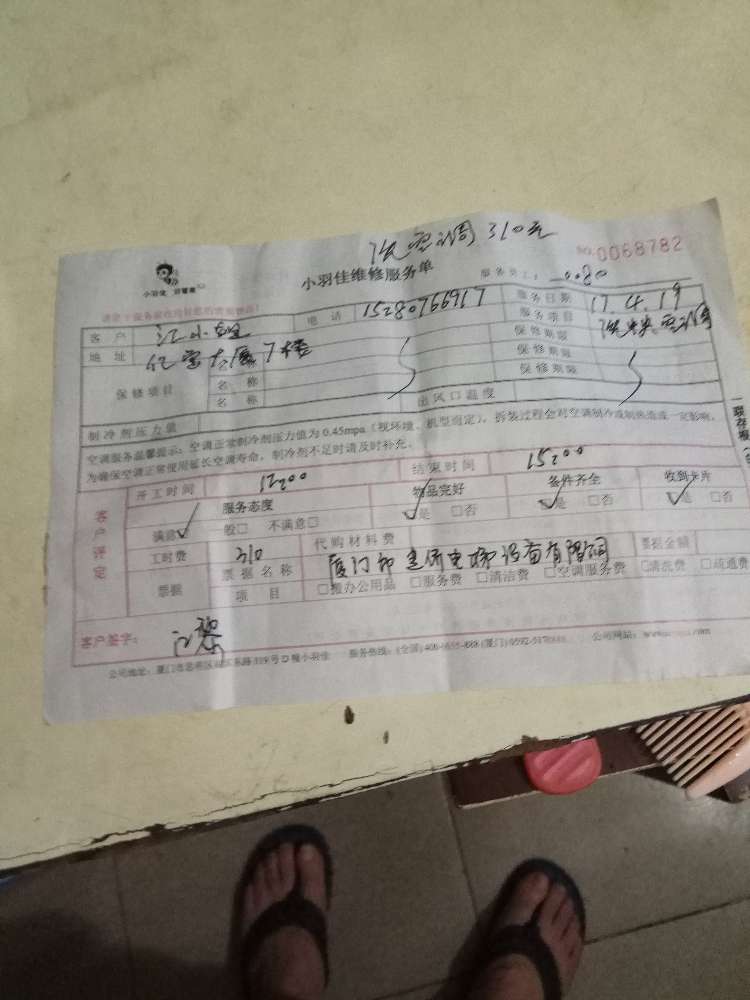 空调 310元
小羽佳维修服务单
NO.0068782
小羽佳 好管家
服务员工: 0080
客户 江小 电话 15280766917 服务日期 17.4.19
地址 大厦7楼 服务项目 空调
保修期限
保修项目 名称 保修期限
名称 保修期限
制冷剂压力值 出风口温度
空调服务温馨提示:空调正常制冷剂压力值为0.45mpa(视环境、机型而定),拆装过程会对空调制冷或制热造成一定影响,
为确保空调正常使用延长空调寿命,制冷剂不足时请及时补充。
开工时间 12:00 结束时间 15:00
客户评定 服务态度 物品完好 备件齐全 收到卡片
满意✓ 般□ 不满意□ ✓是 □否 ✓是 □否 ✓是 □否
工时费 310 代购材料费
票据 票据名称 厦门 电梯设备有限公司 票据金额
项目 □搬办公用品 □服务费 □清洁费 □空调服务费 □清洗费 □疏通费
客户签字: 江
服务热线:(全国)400 (厦门)0592 公司网站:
一联存根